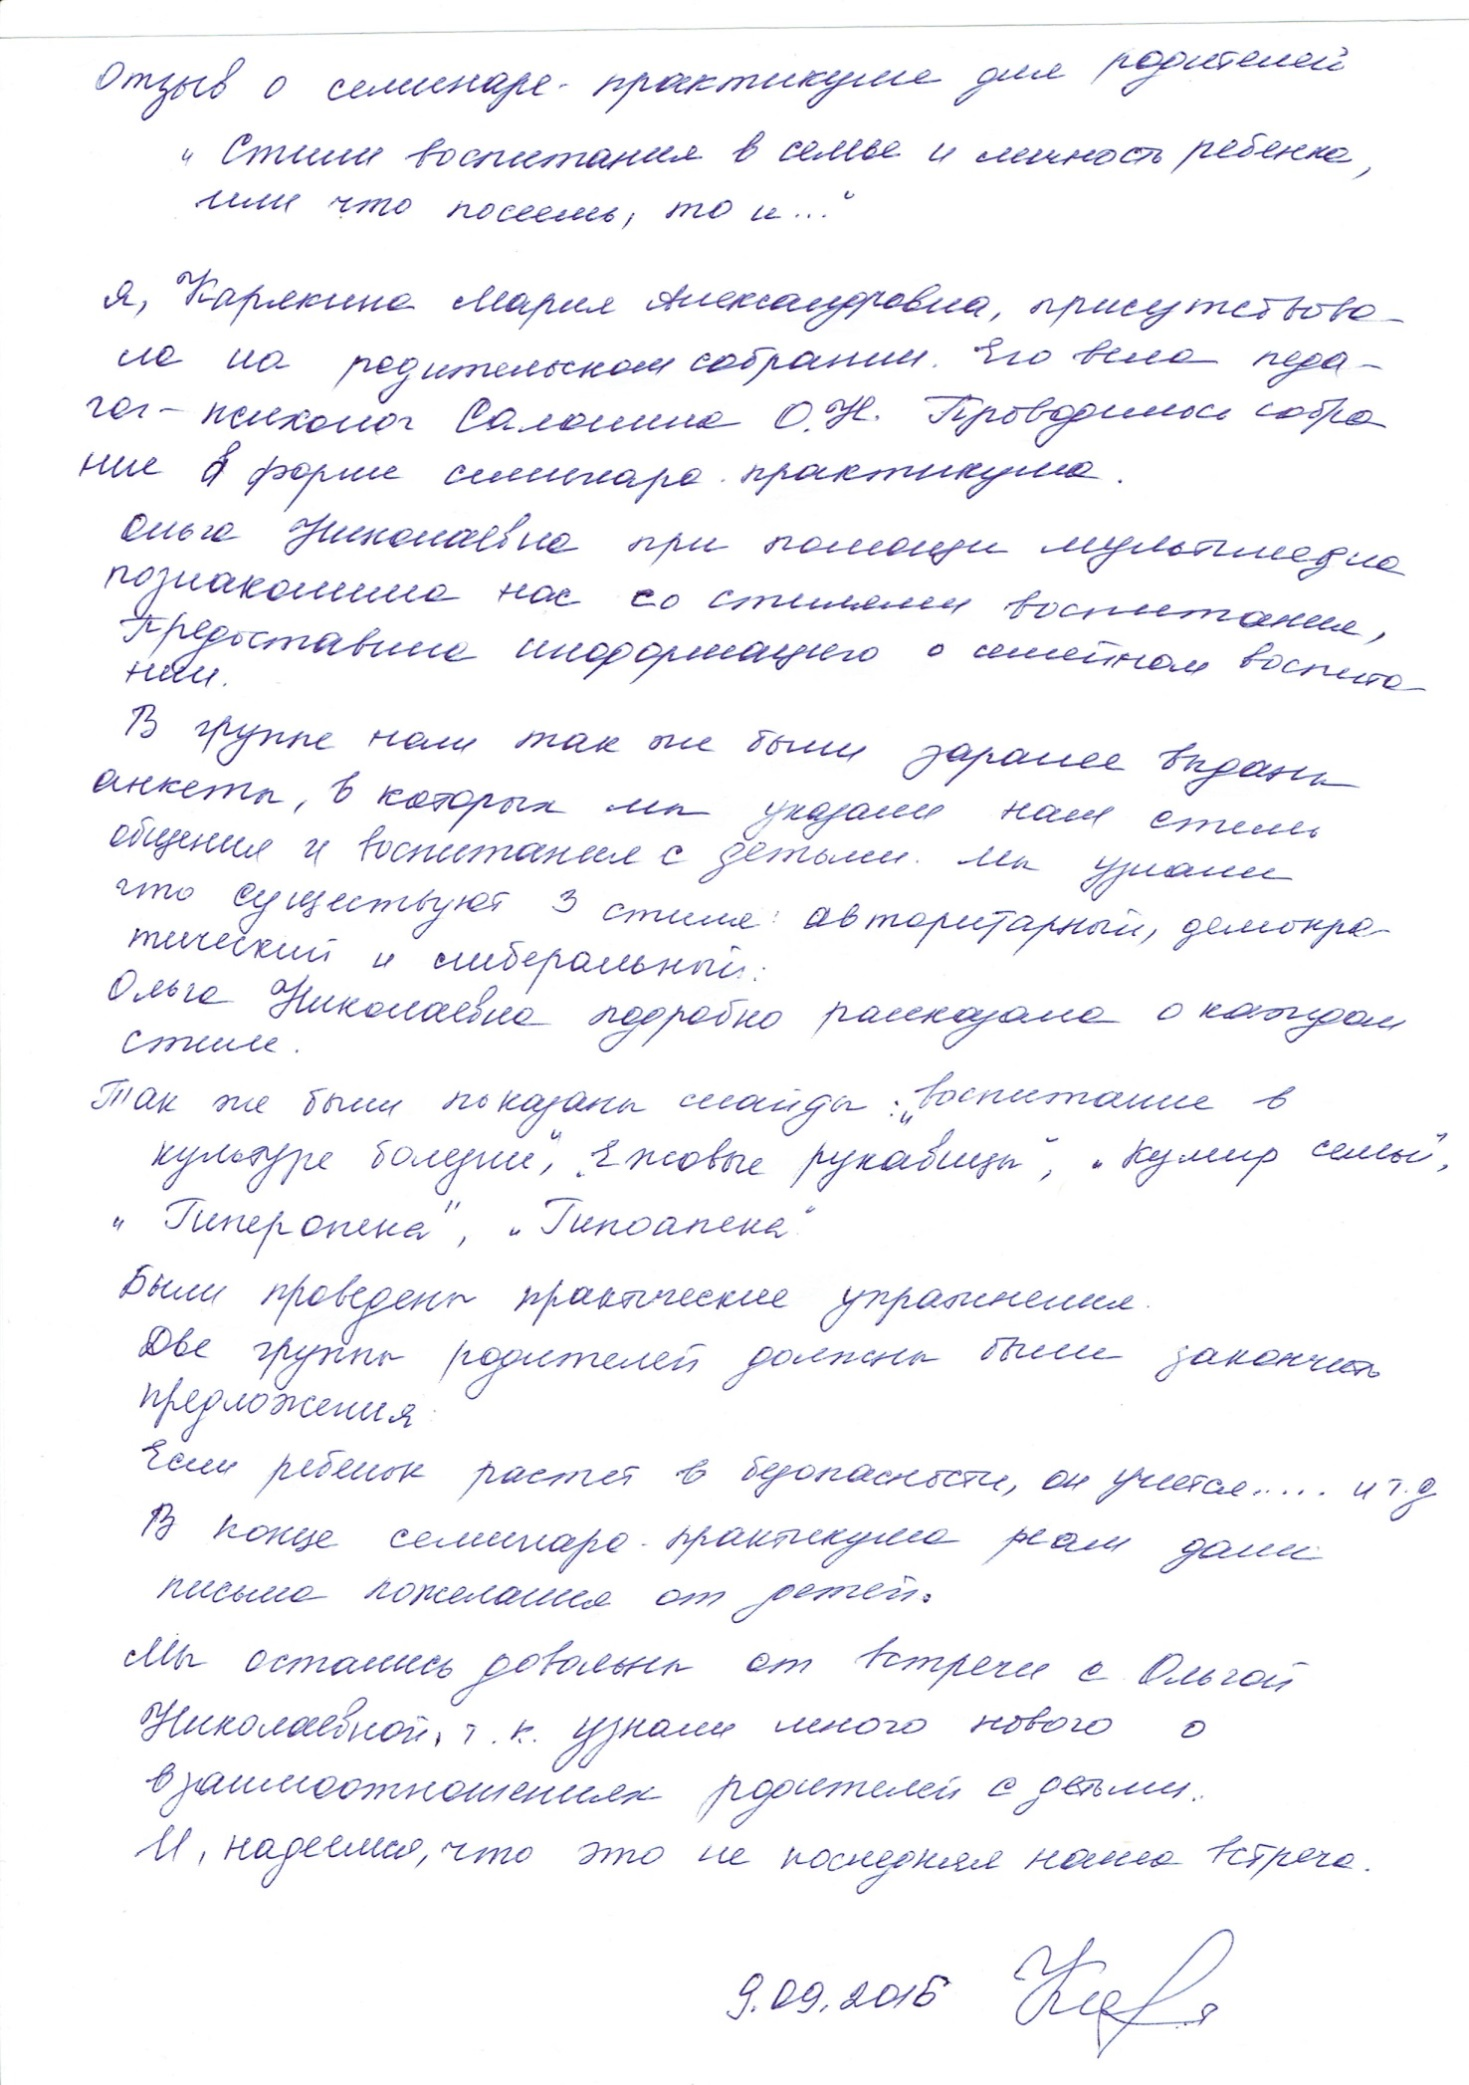 Отзыв о семинаре-практикуме для родителей
„Стили воспитания в семье и личность ребенка,
или что посеешь, то и..."
Я, Карякина Мария Александровна, присутствова-
ла на родительском собрании. Его вела педа-
гог-психолог Саломина О.Н. Проводилось собра
ние в форме семинара-практикума.
Ольга Николаевна при помощи мультимедиа
познакомила нас со стилями воспитания,
Предоставила информацию о семейном воспита-
нии.
В группе нам так же были заранее выданы
анкеты, в которых мы указали наш стиль
общения и воспитания с детьми. Мы узнали
что существуют 3 стиля: авторитарный, демокра-
тический и либеральный.
Ольга Николаевна подробно рассказала о каждом
стиле.
Так же были показаны слайды: „Воспитание в
культуре болезни", „Ежовые рукавицы", „Кумир семьи",
„Гиперопека", „Гипоопека"
Были проведены практические упражнения.
Две группы родителей должны были закончить
предложения:
Если ребенок растет в безопасности, он учится..... и т.д
В конце семинара-практикума нам дали
письма пожелания от детей.
Мы остались довольны от встречи с Ольгой
Николаевной, т.к. узнали много нового о
взаимоотношениях родителей с детьми.
И, надеемся, что это не последняя наша встреча.
9.09.2016